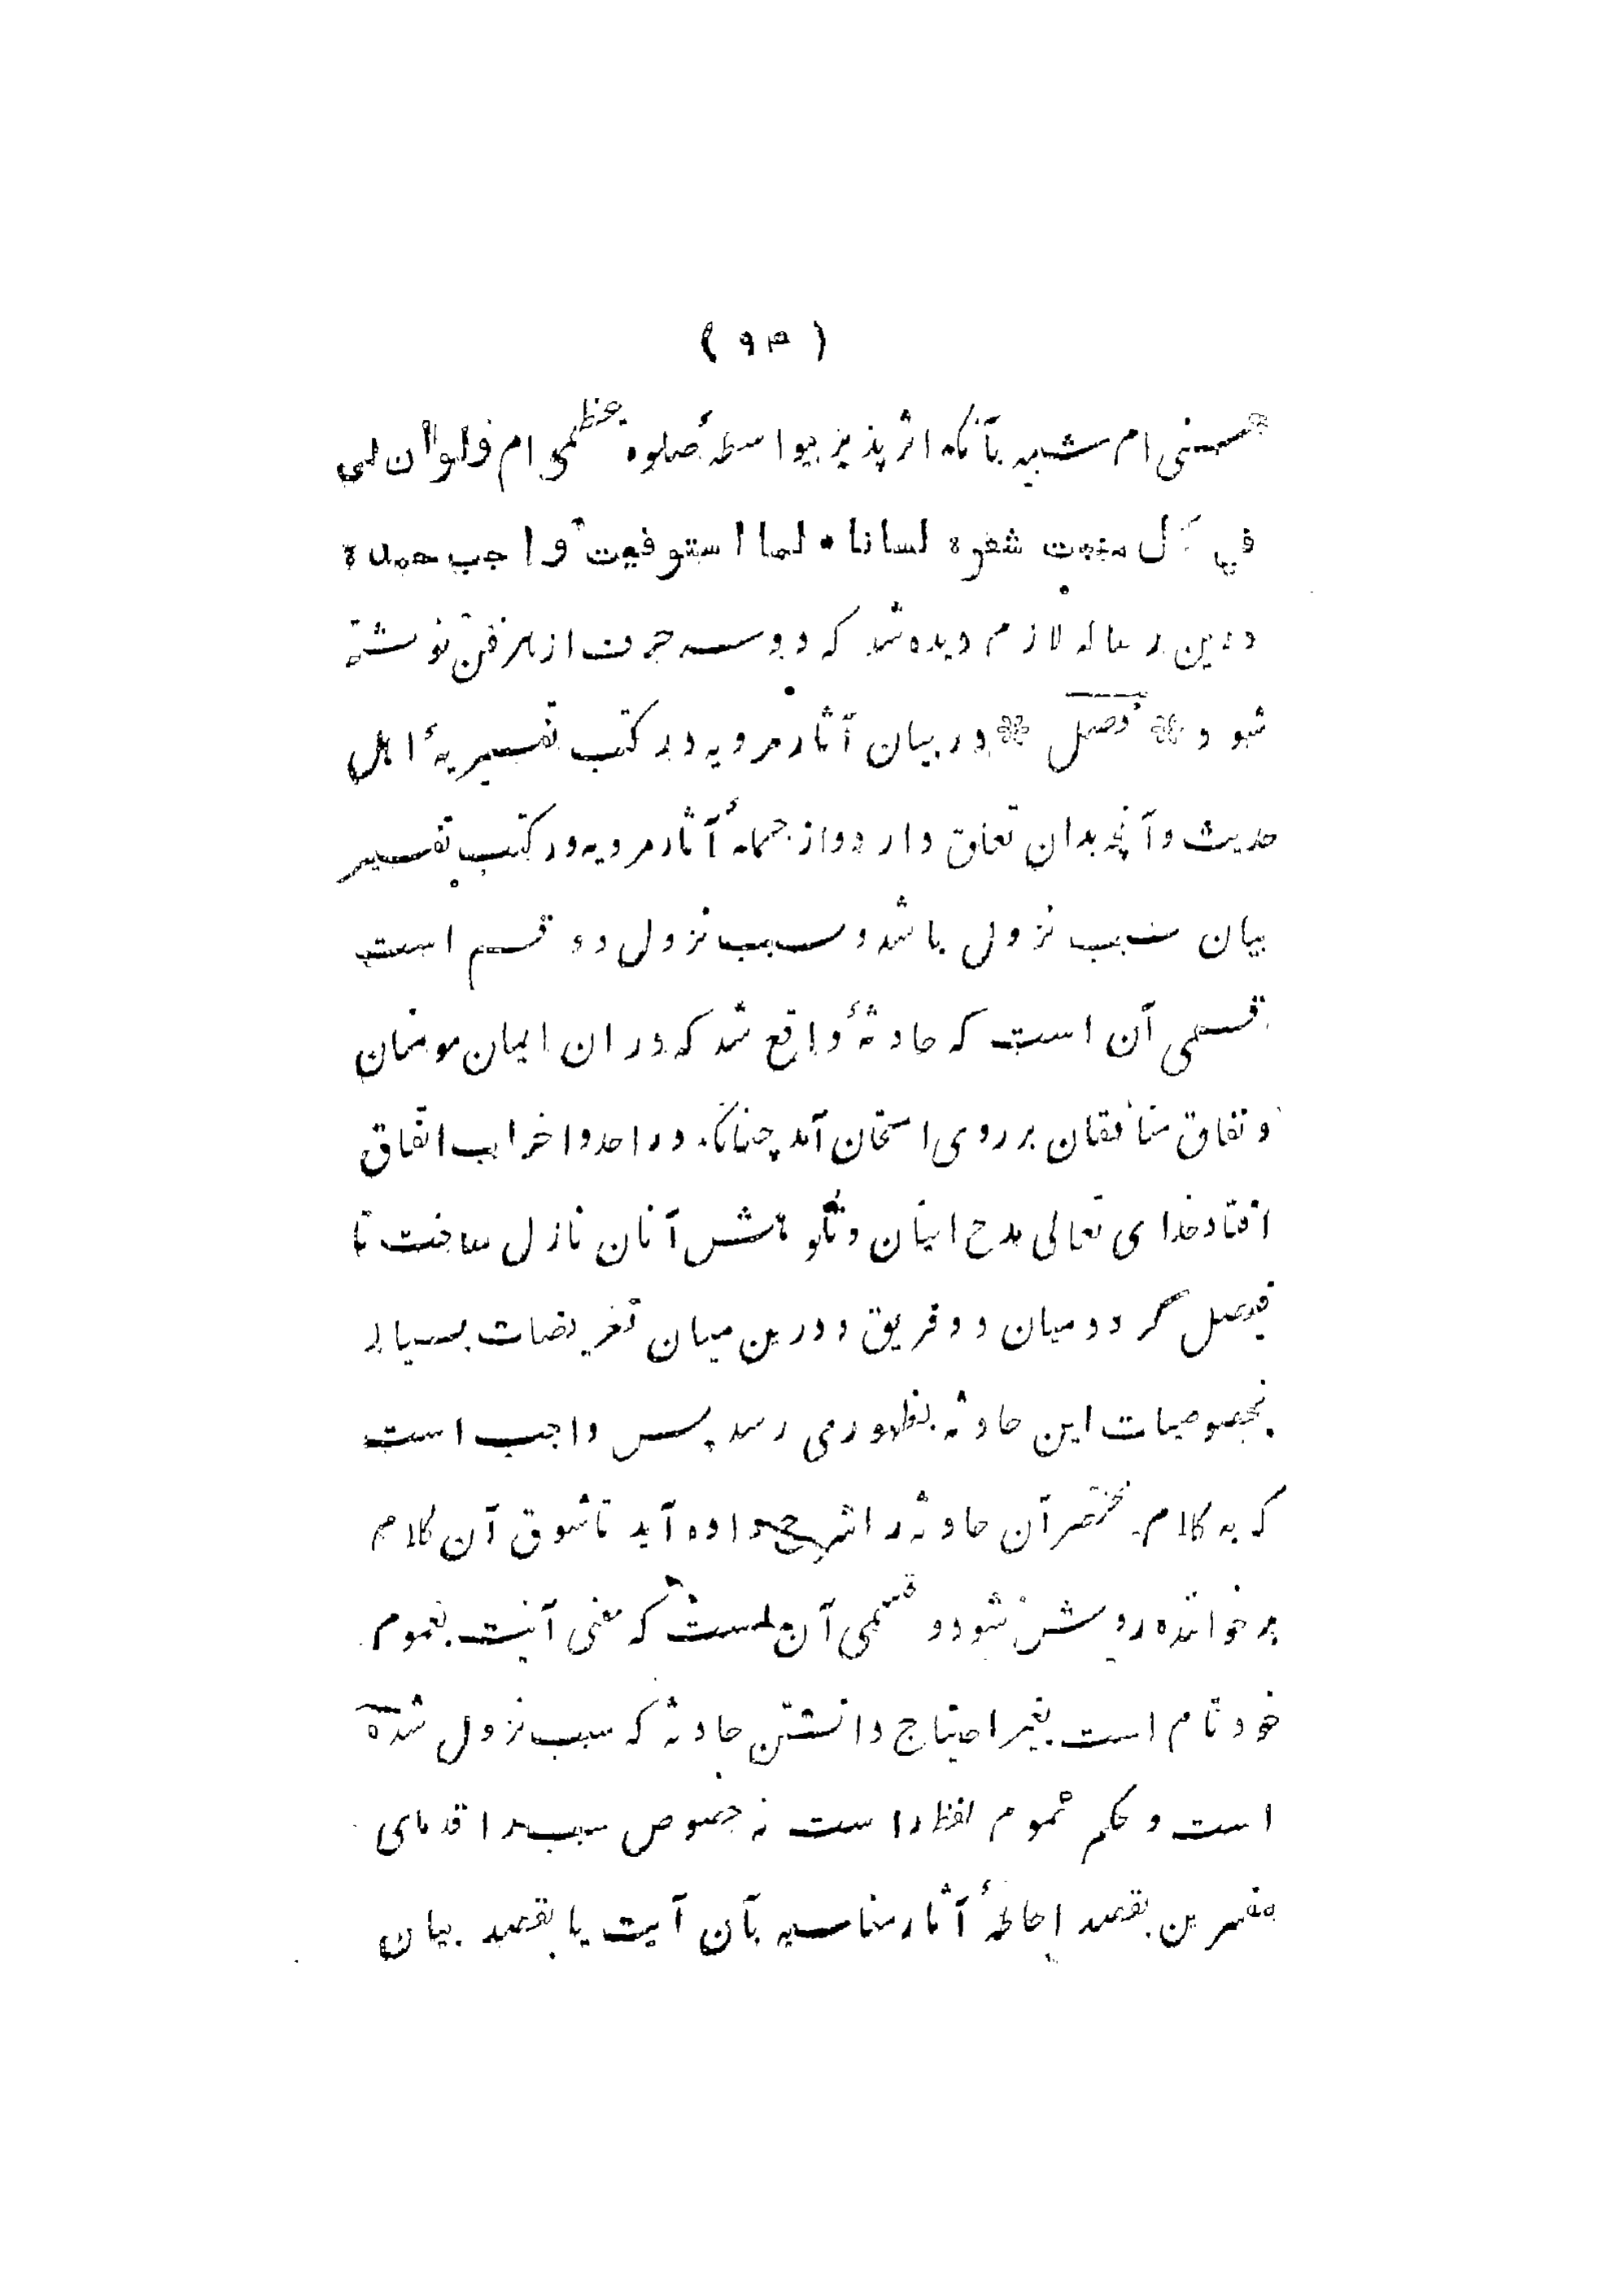 ( ۹۳ )
حسنی ام شبیه بآنکه اثر پذیر بیواسطهٔ صلوه عظمی ام فلو ان لی
فی کل منبت شعره لسانا • لما استوفیت واجب حمده
درین رساله لازم دیده شد که دو سه حرف از هر فن نوشته
شود ❊ فصل ❊ در بیان آثار مرویه در کتب تفسیریهٔ اهل
حدیث و آنچه بدان تعلق دارد و از جملهٔ آثار مرویه در کتب تفسیر
بیان سبب نزول باشد و سبب نزول دو قسم است
قسمی آن است که حادثهٔ واقع شد که در ان ایمان مومنان
و نفاق منافقان بر روی امتحان آمد چنانکه در احد و احزاب اتفاق
افتاد خدای تعالی مدح اینان و نکوهش آنان نازل ساخت تا
فیصل گردد میان دو فریق و درین میان تعریضات بسیار
بخصوصیات این حادثه بظهور می رسد پس واجب است
که به کلام مختصر آن حادثه را شرح داده آید تا سوق آن کلام
بر خواننده روشن شود و قسمی آن است که معنی آیت بعموم
خود تام است بغیر احتیاج دانستن حادثه که سبب نزول شده
است و حکم عموم لفظ راست نه خصوص سبب را قدمای
مفسرین بقصد احاطهٔ آثار مناسبه بآن آیت یا بقصد بیان